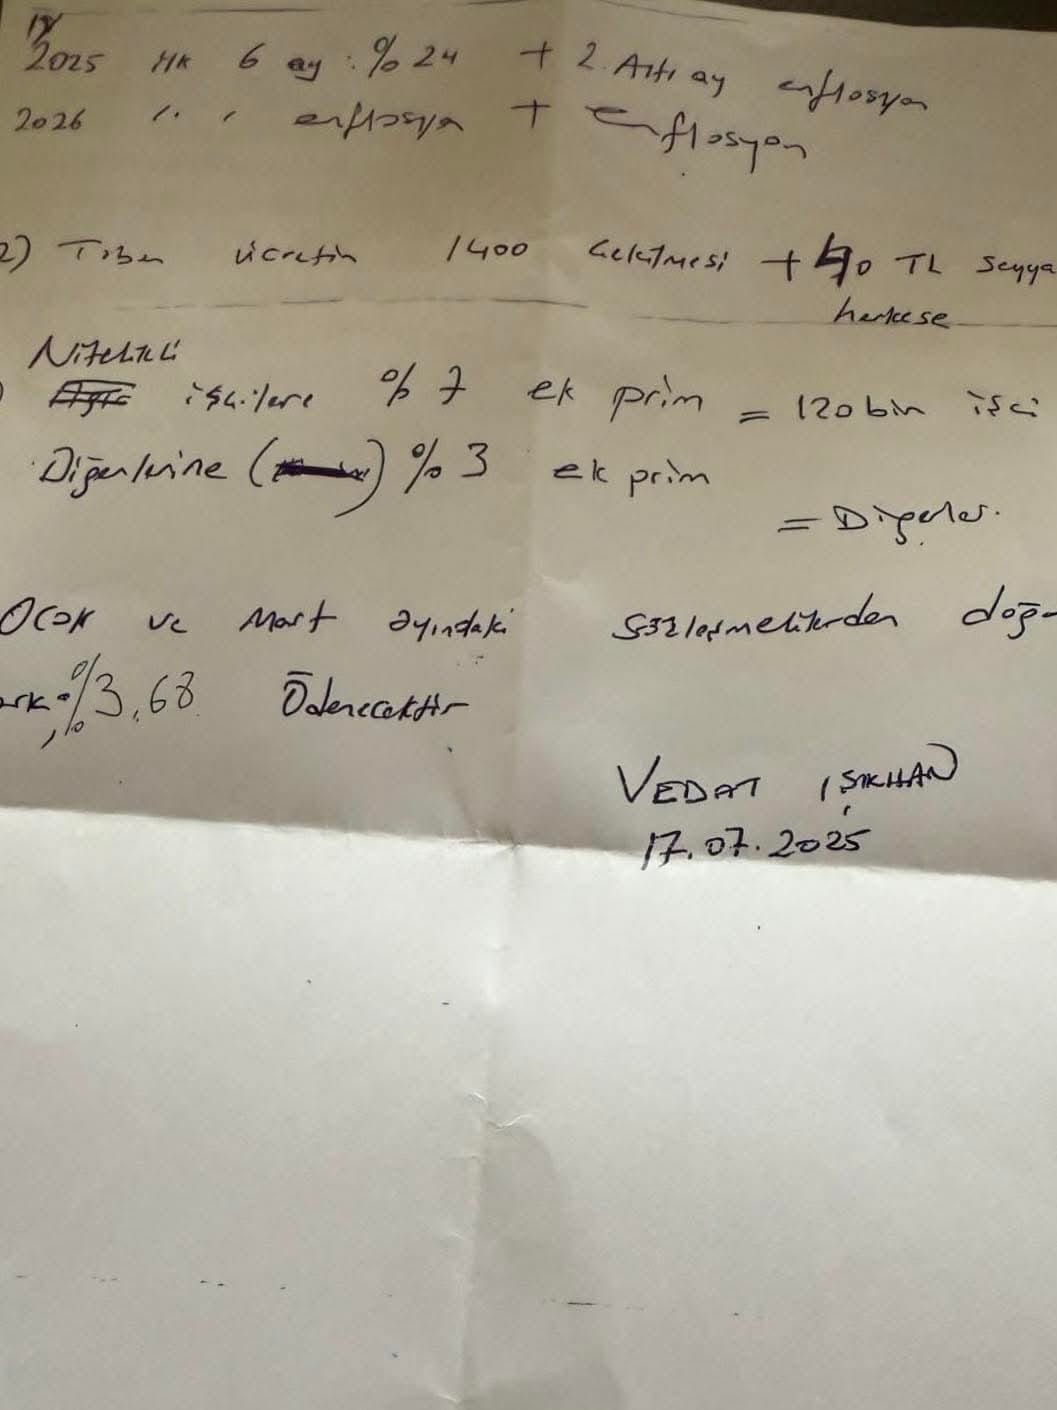 1)
2025 ilk 6 ay : %24 + 2. Altı ay enflosyon
2026 " " enflosyon + Enflosyon
2) Taban ücretin 1400 çekilmesi + 40 TL seyya
herkese
Nitelikli
) işçilere %7 ek prim = 120 bin işçi
Diğerlerine ( ) %3 ek prim
= Diğerler.
Ocak ve Mart ayındaki sözleşmelilerden doğ-
ark %3,68 Ödenecektir
VEDAT IŞIKHAN
17.07.2025